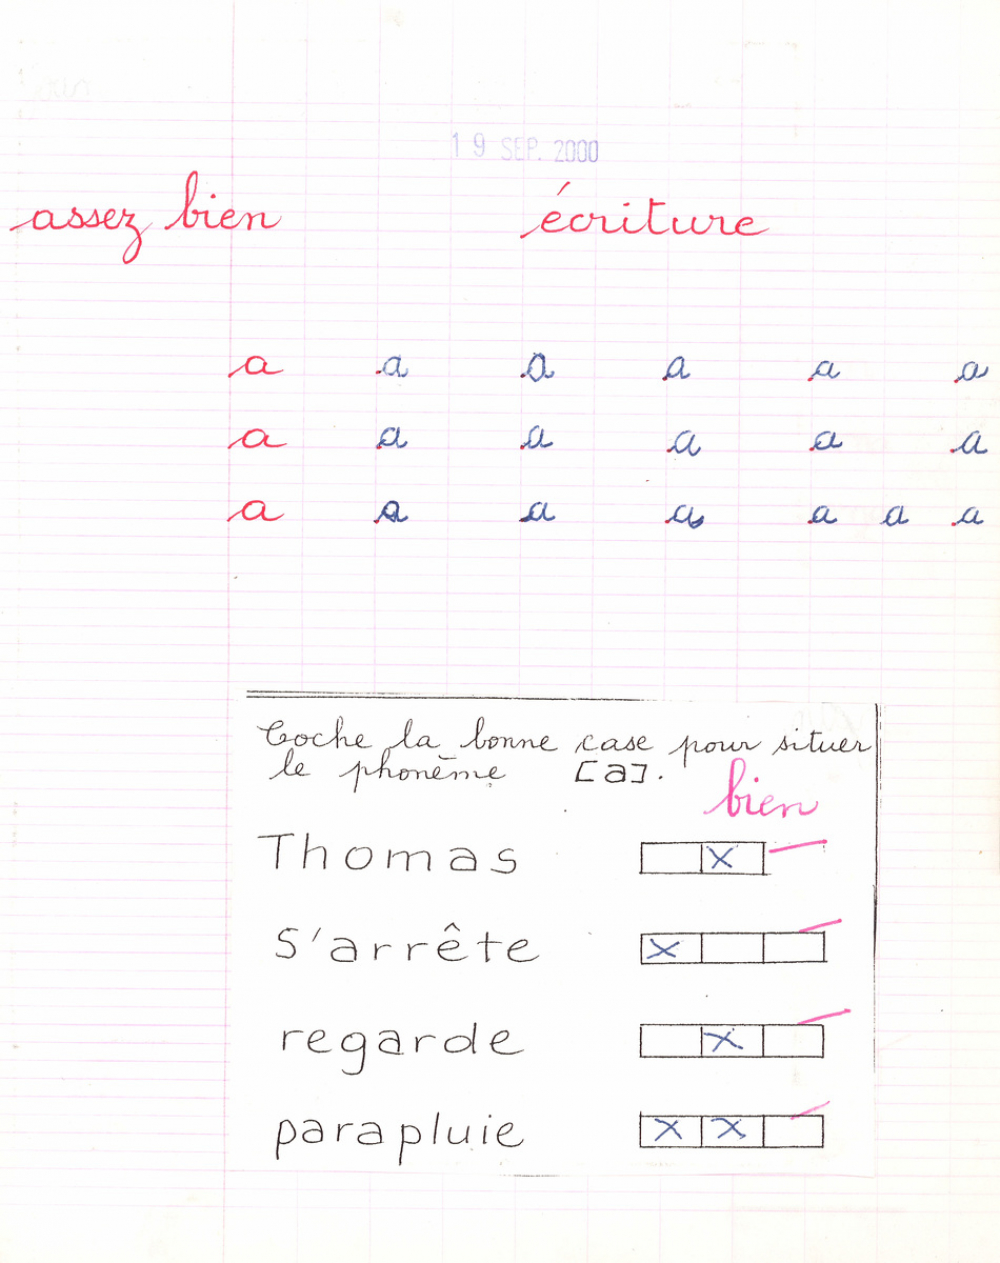 19 SEP. 2000
assez bien écriture
a a a a a a
a a a a a a
a a a a a a a
Coche la bonne case pour situer
le phonème [a].
bien
Thomas x
S'arrête x
regarde x
parapluie x x